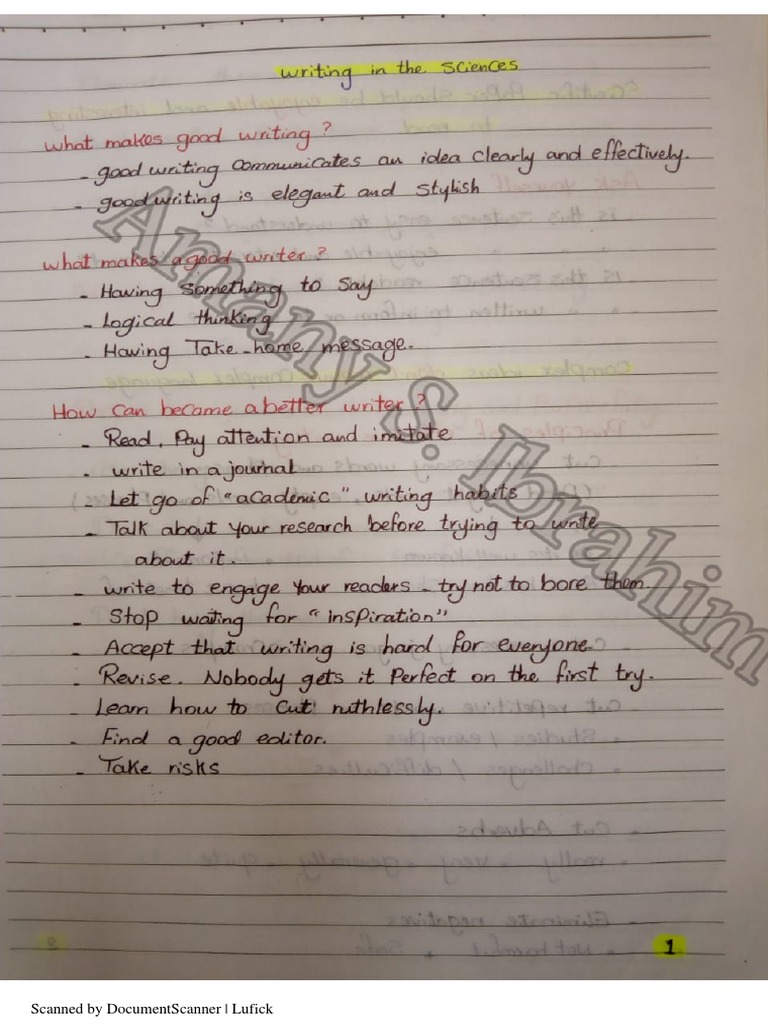 writing in the Sciences
what makes good writing?
- good writing communicates an idea clearly and effectively.
- good writing is elegant and stylish
what makes a good writer?
- Having something to say
- Logical thinking
- Having Take-home message.
How can become a better writer?
- Read, Pay attention and imitate
- write in a journal
- Let go of "academic" writing habits
- Talk about your research before trying to write
about it.
- write to engage your readers - try not to bore them.
- Stop waiting for "inspiration"
- Accept that writing is hard for everyone.
- Revise. Nobody gets it Perfect on the first try.
- Learn how to cut ruthlessly.
- Find a good editor.
- Take risks
Amany S. Ibrahim
1
Scanned by DocumentScanner | Lufick